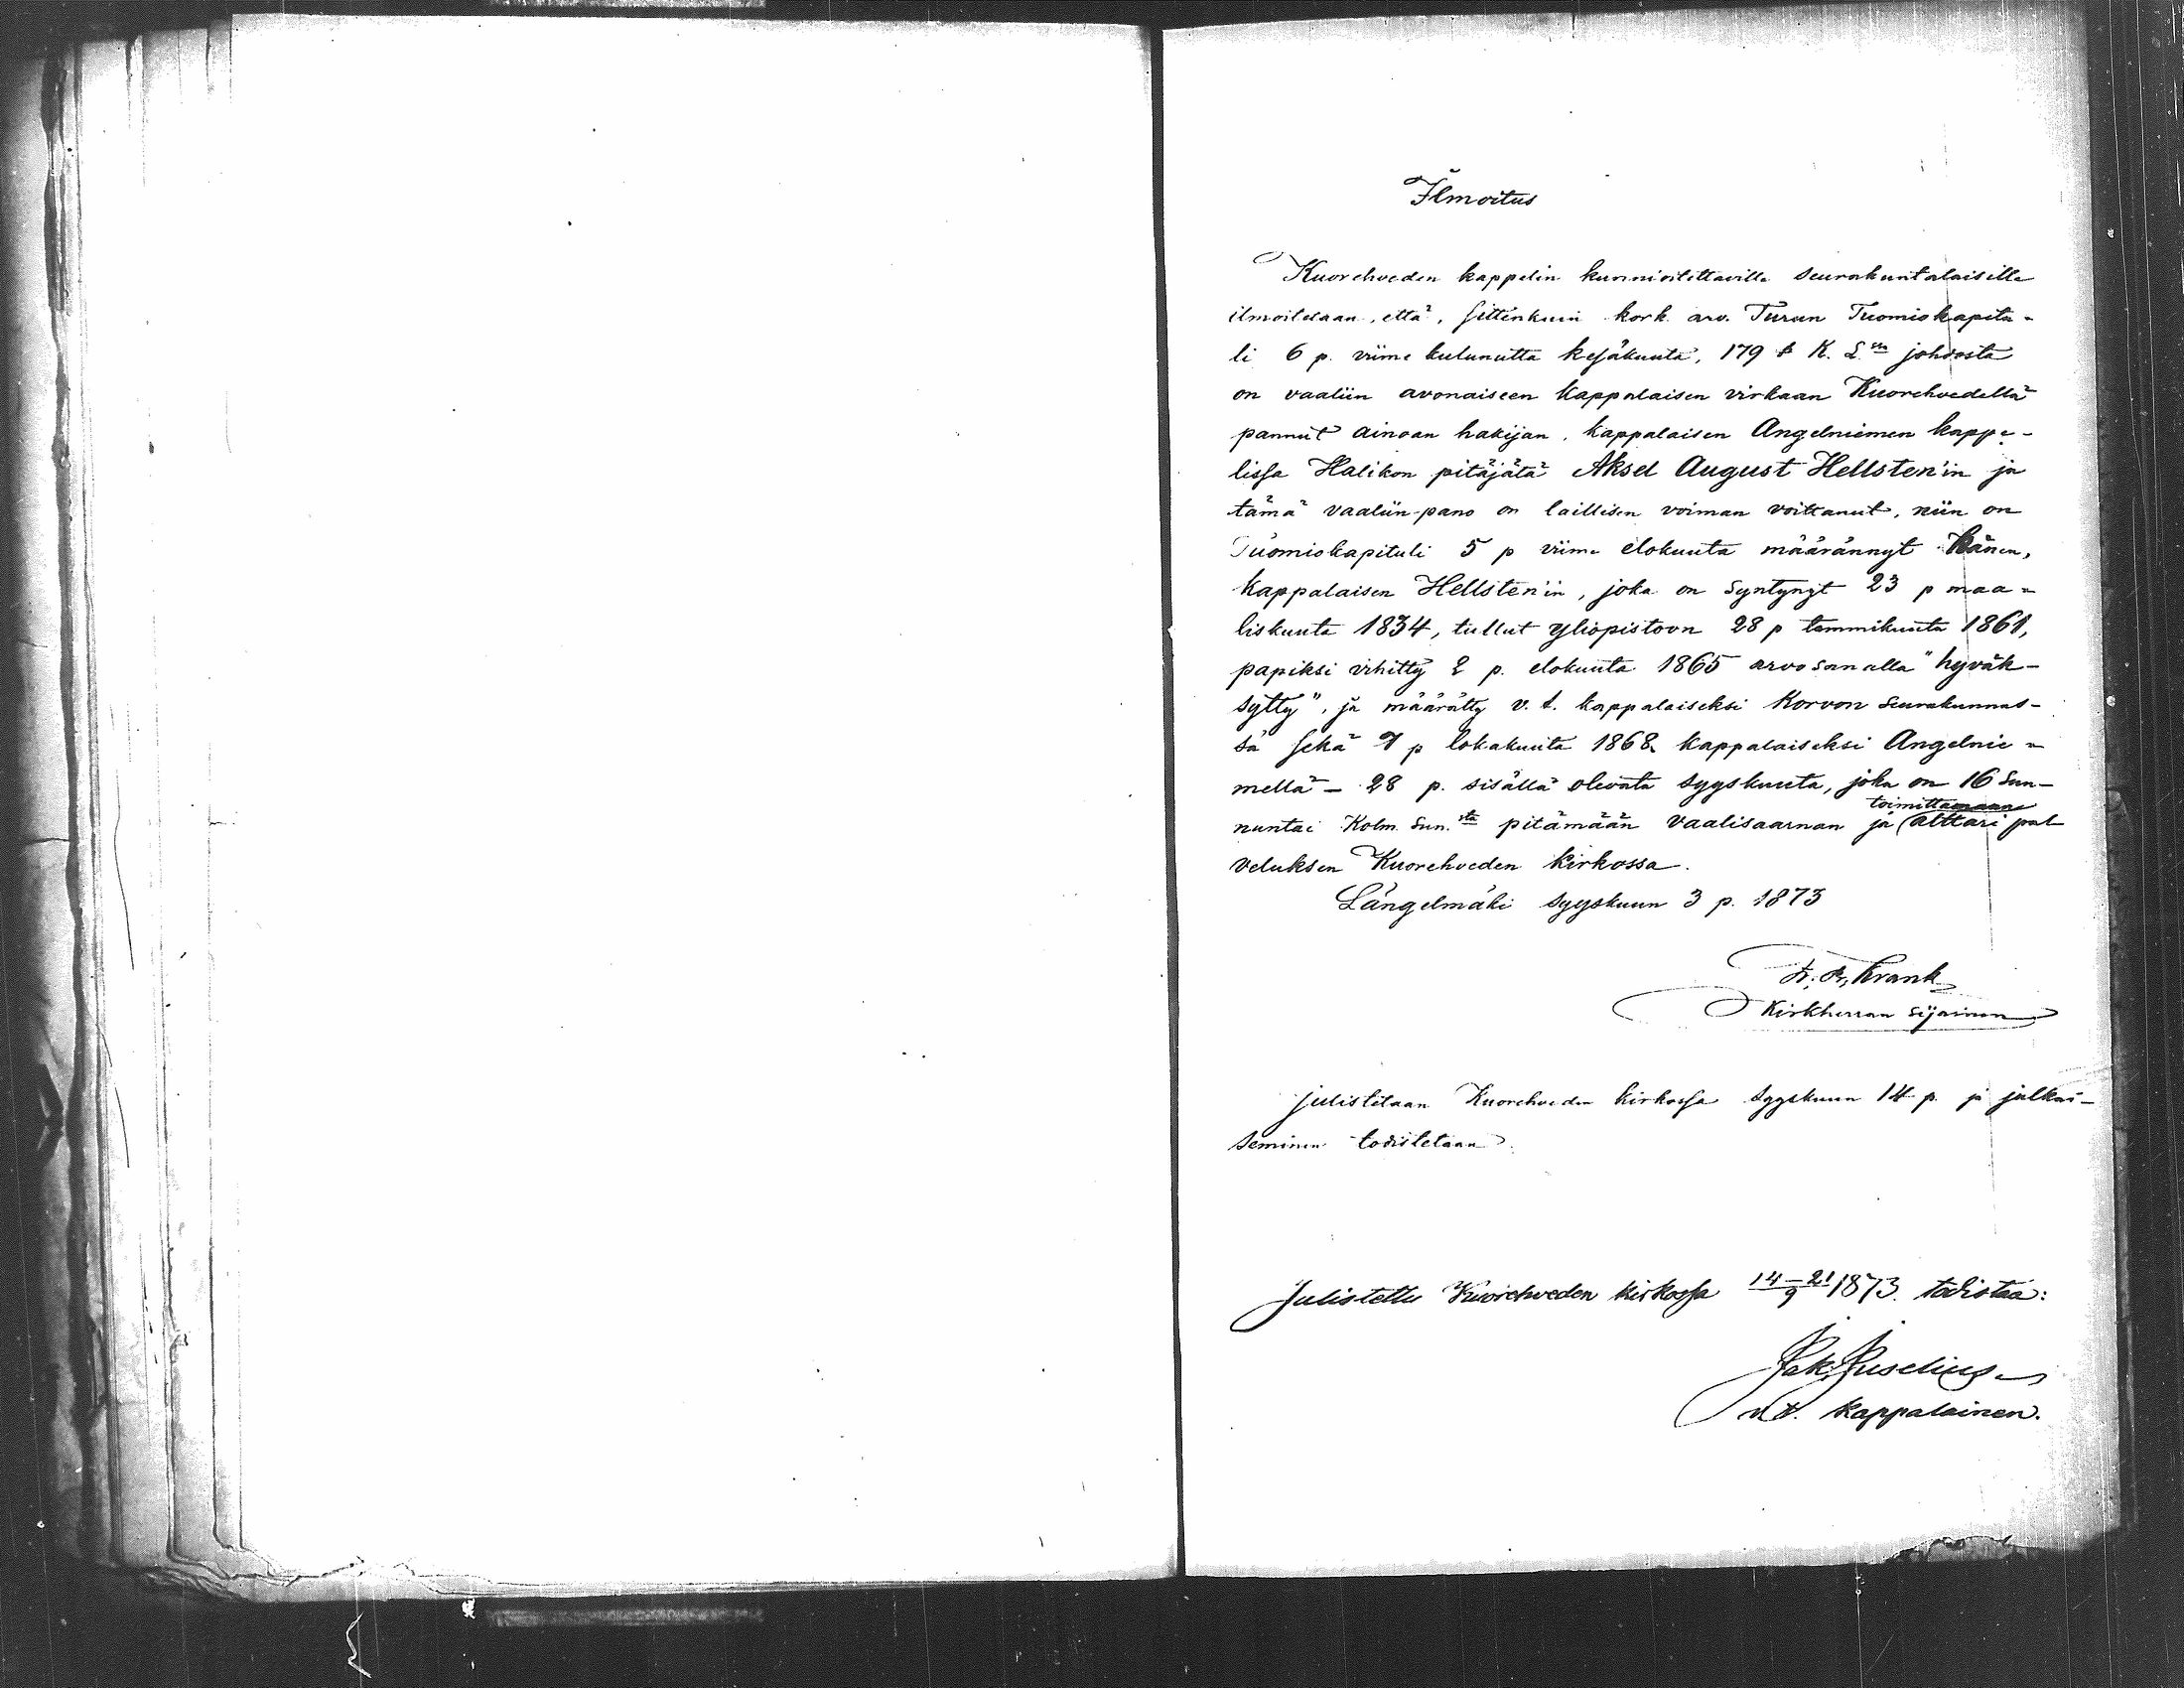 Ilmoitus
Kuorehveden kappelin kunnioitettaville seurakuntalaisille
ilmoitetaan, että, sittenkuin kork. arv. Turun Tuomiokapitu-
li 6 p. viime kulunutta kesäkuuta, 179 § K. L:n johdosta
on vaaliin avonaiseen kappalaisen virkaan Kuorehvedellä
pannut ainoan hakijan, kappalaisen Angelniemen kappe-
lissa Halikon pitäjätä Aksel August Hellsten'in ja
tämä vaaliin-pano on laillisen voiman voittanut, niin on
Tuomiokapituli 5 p viime elokuuta määrännyt hänen,
kappalaisen Hellsten'in, joka on syntynyt 23 p maa-
liskuuta 1834, tullut yliopistoon 28 p tammikuuta 1861,
papiksi vihitty 2 p. elokuuta 1865 arvosanalla "hyväk-
sytty", ja määrätty v. t. kappalaiseksi Korvon seurakunnas-
sa sekä 7 p lokakuuta 1868 kappalaiseksi Angelnie-
mellä - 28 p. sisällä olevata syyskuuta, joka on 16 sun-
nuntai Kolm. Sun.sta pitämään vaalisaarnan ja toimittamaan alttari pal
veluksen Kuorehveden kirkossa.
Längelmäki syyskuun 3 p. 1873
Krank
Kirkherran sijainen
Julistetaan Kuorehveden kirkossa syyskuun 14 p. ja julkai-
seminen todistetaan.
Julistettu Kuorehveden kirkossa 14-21/9 1873. todistaa:
Jak. Juselius
v.t. kappalainen.